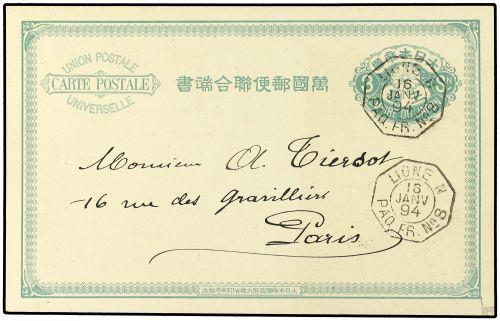 UNION POSTALE
CARTE POSTALE
UNIVERSELLE
書端合聯便郵國萬
大日本帝國
3 S
LIGNE N
16
JANV
94
PAQ. FR. Nº 8
Monsieur A. Tiersot
16 rue des Gravilliers
Paris
LIGNE N
16
JANV
94
PAQ. FR. Nº 8